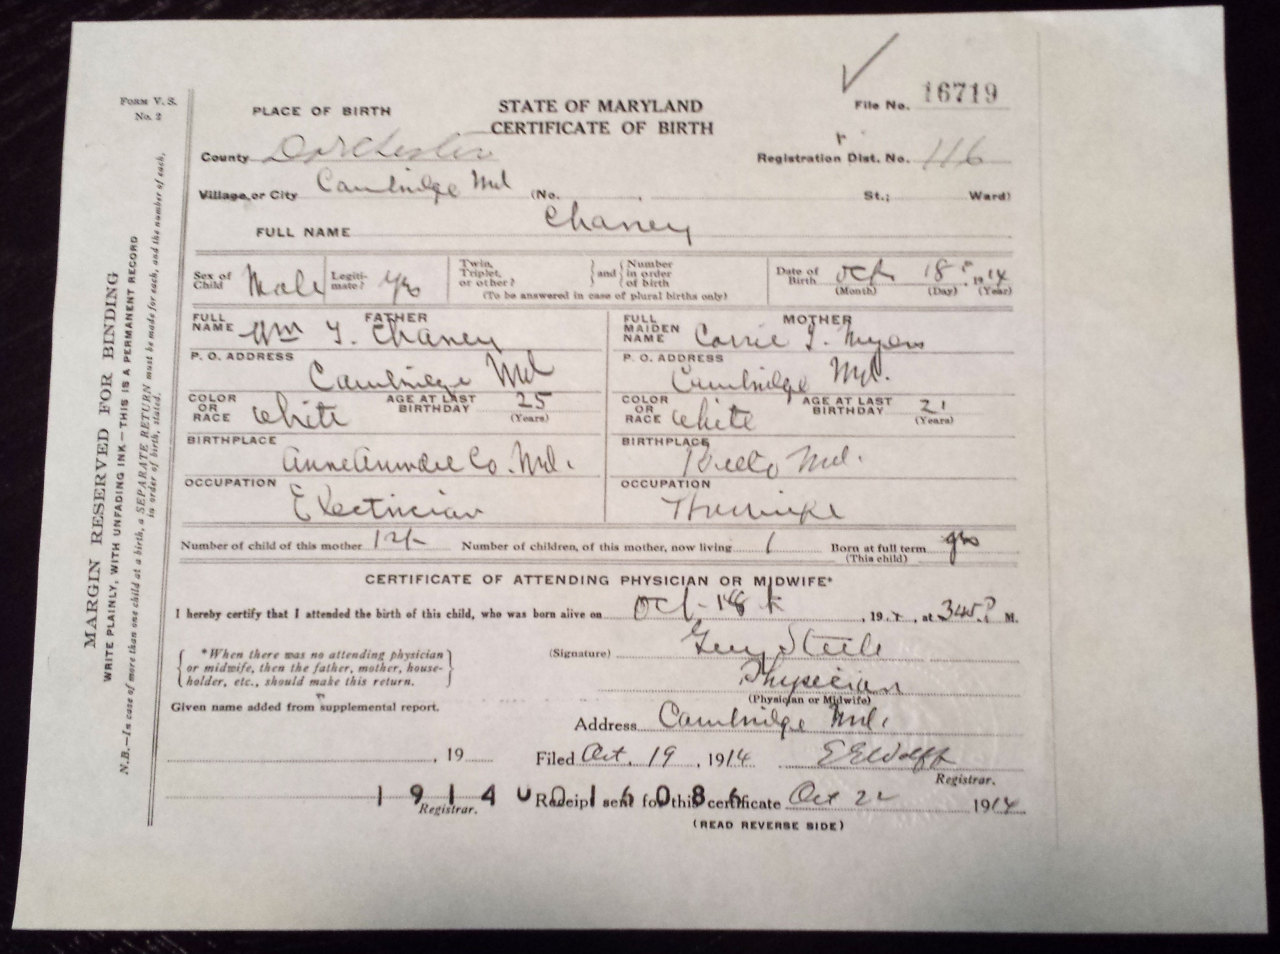 FORM V. S.
No. 2
MARGIN RESERVED FOR BINDING
WRITE PLAINLY, WITH UNFADING INK—THIS IS A PERMANENT RECORD
N.B.—In case of more than one child at a birth, a SEPARATE RETURN must be made for each, and the number of each, in order of birth, stated.
PLACE OF BIRTH
STATE OF MARYLAND
CERTIFICATE OF BIRTH
File No. 16719
County Dorchester
Registration Dist. No. 116
Village, or City Cambridge Md (No. , St.; Ward)
FULL NAME Chaney
Sex of Child Male
Legiti-mate? Yes
Twin, Triplet, or other? and Number in order of birth
(To be answered in case of plural births only)
Date of Birth Oct 18, 1914
(Month) (Day) (Year)
FATHER
FULL NAME Wm T. Chaney
P. O. ADDRESS
Cambridge Md
COLOR OR RACE White
AGE AT LAST BIRTHDAY 25
(Years)
BIRTHPLACE
Anne Arundel Co. Md.
OCCUPATION
Electrician
MOTHER
FULL MAIDEN NAME Carrie I. Myers
P. O. ADDRESS
Cambridge Md.
COLOR OR RACE White
AGE AT LAST BIRTHDAY 21
(Years)
BIRTHPLACE
Md.
OCCUPATION
Housewife
Number of child of this mother 1st Number of children, of this mother, now living 1 Born at full term yes
(This child)
CERTIFICATE OF ATTENDING PHYSICIAN OR MIDWIFE*
I hereby certify that I attended the birth of this child, who was born alive on Oct-18, 19 , at 345 P M.
*When there was no attending physician
or midwife, then the father, mother, house-
holder, etc., should make this return.
(Signature) Steele
Physician
(Physician or Midwife)
Given name added from supplemental report.
Address Cambridge Md.
, 19
Filed Oct. 19, 1914 E E Wolff
Registrar.
1914 0016086
Registrar.
Receipt sent for this certificate Oct 22 1914
(READ REVERSE SIDE)